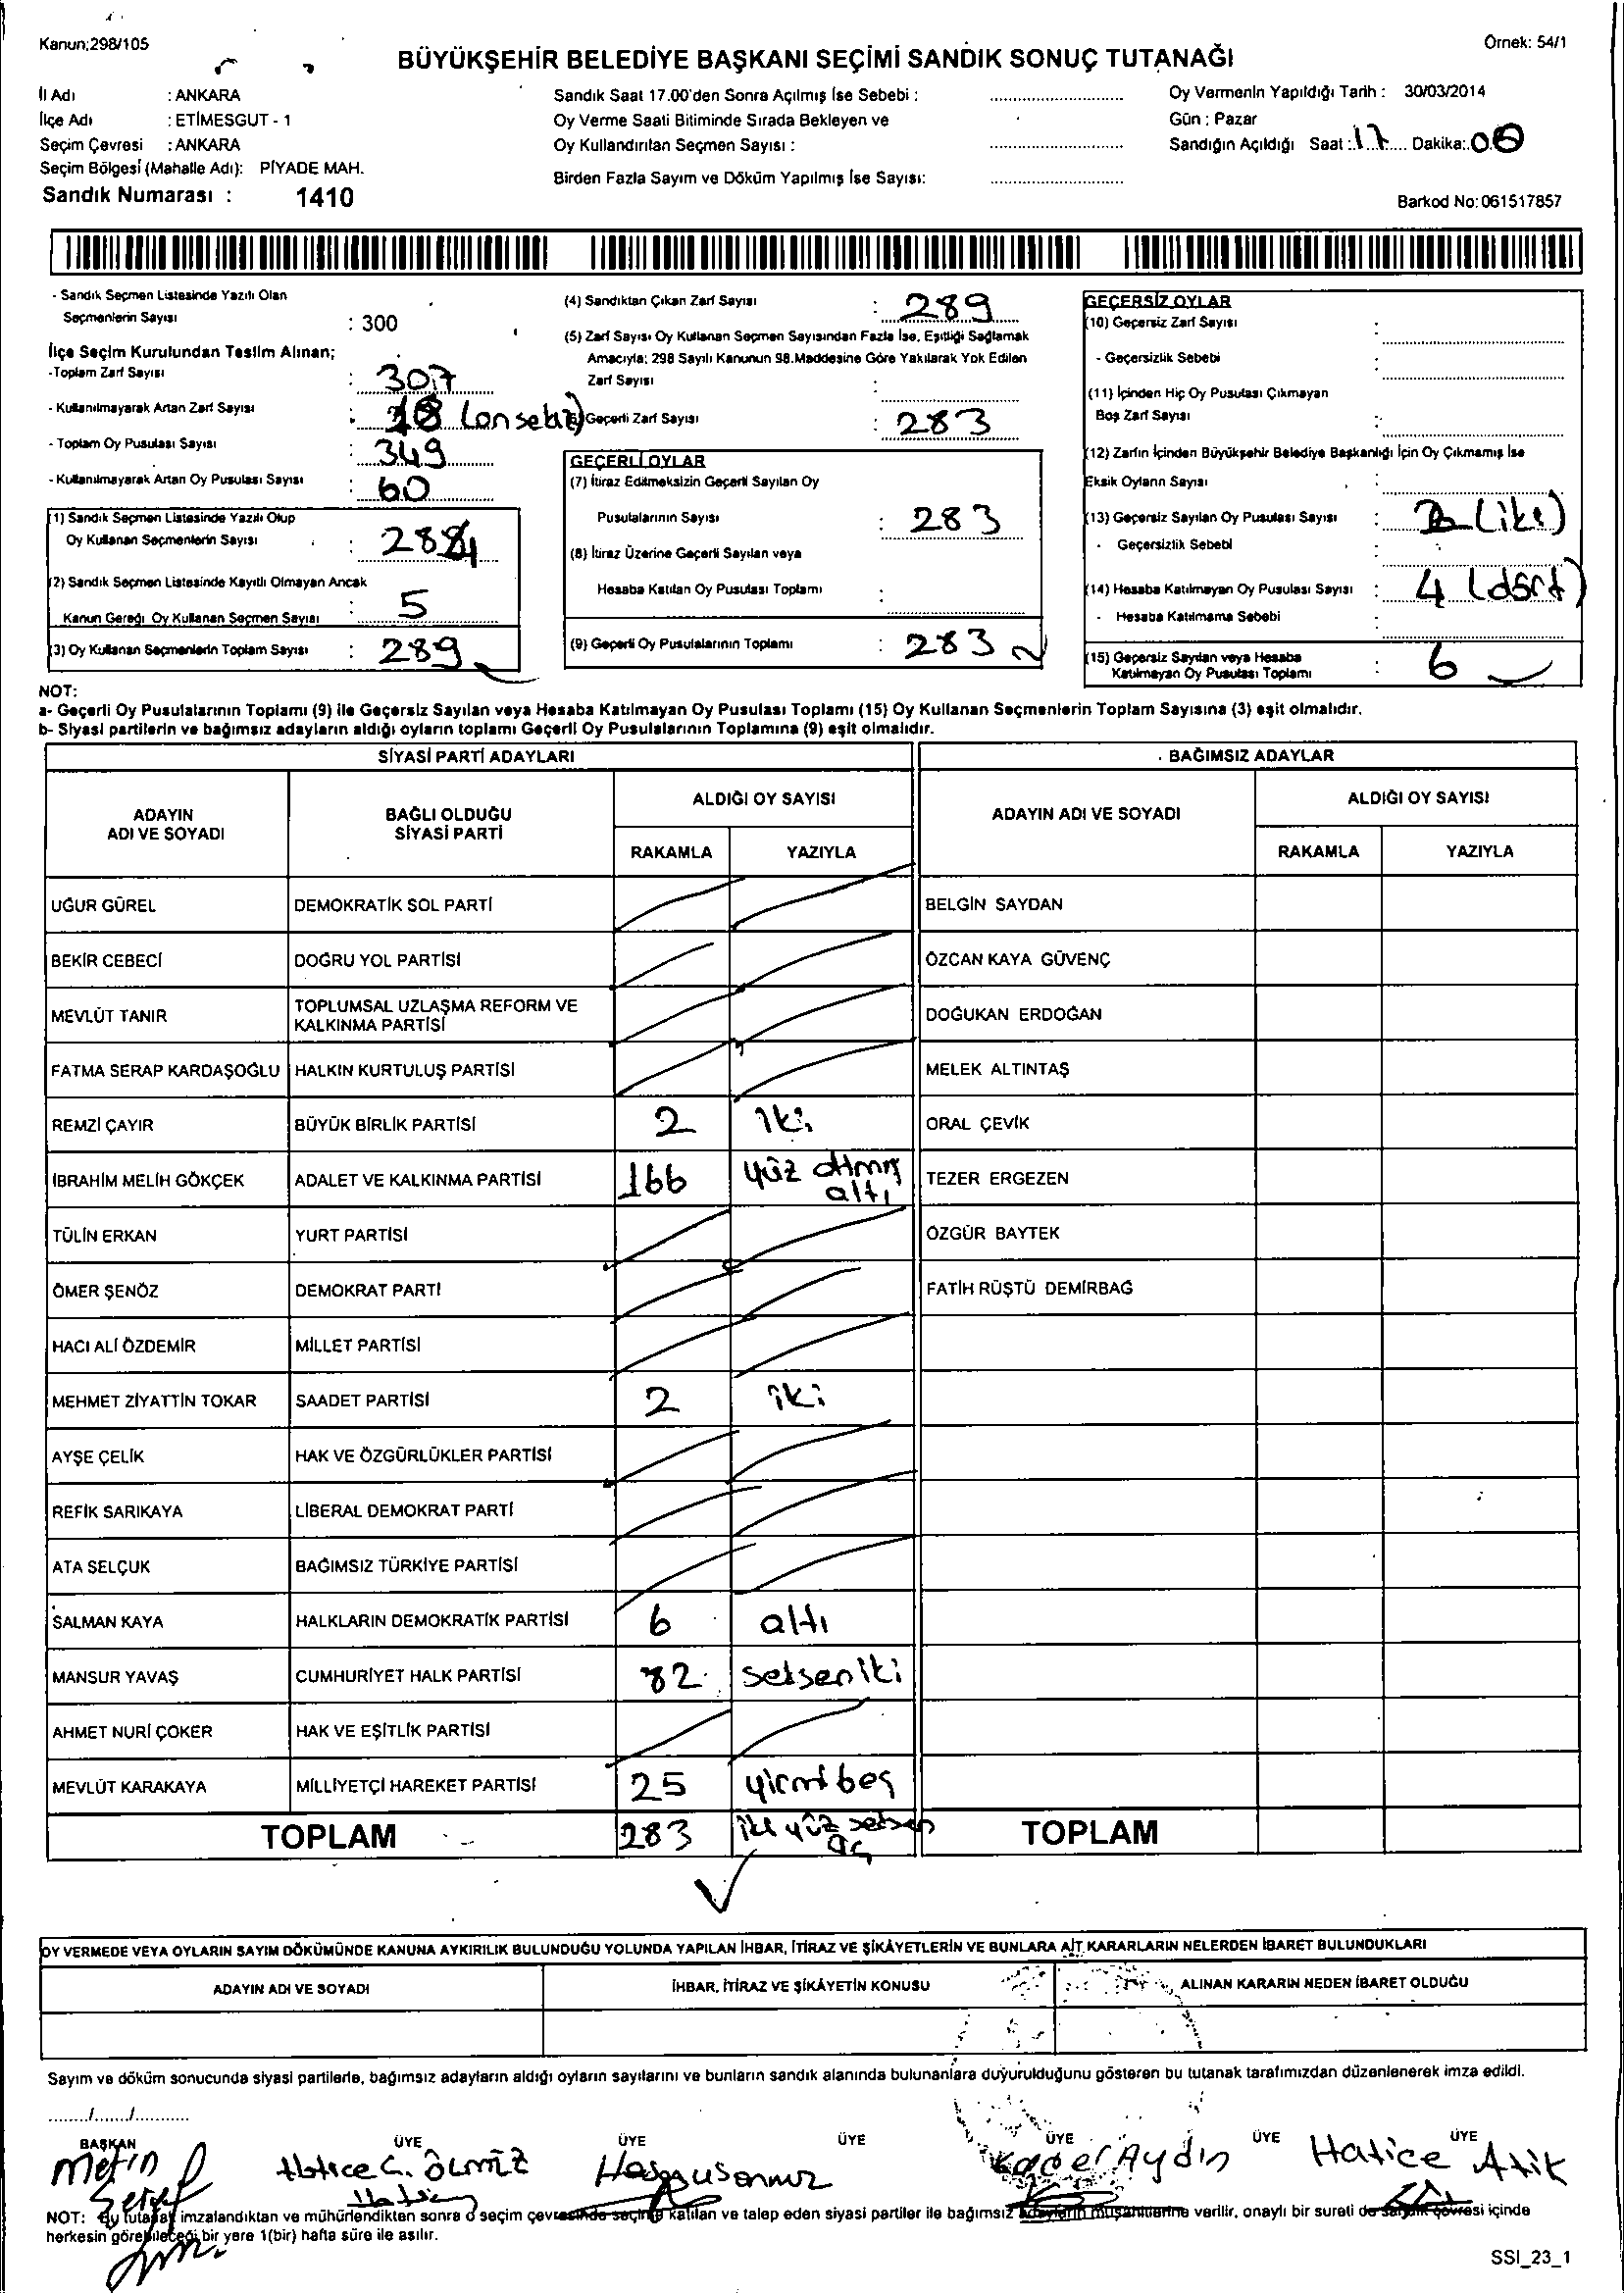 Kanun;298/105
Örnek: 54/1
BÜYÜKŞEHİR BELEDİYE BAŞKANI SEÇİMİ SANDIK SONUÇ TUTANAĞI
İl Adı : ANKARA
İlçe Adı : ETİMESGUT - 1
Seçim Çevresi : ANKARA
Seçim Bölgesi (Mahalle Adı): PİYADE MAH.
Sandık Numarası : 1410
Sandık Saat 17.00'den Sonra Açılmış İse Sebebi : ..............................
Oy Verme Saati Bitiminde Sırada Bekleyen ve
Oy Kullandırılan Seçmen Sayısı : ..............................
Birden Fazla Sayım ve Döküm Yapılmış İse Sayısı: ..............................
Oy Vermenin Yapıldığı Tarih : 30/03/2014
Gün : Pazar
Sandığın Açıldığı Saat : 17 Dakika:
Barkod No: 061517857
- Sandık Seçmen Listesinde Yazılı Olan
Seçmenlerin Sayısı : 300
İlçe Seçim Kurulundan Teslim Alınan;
-Toplam Zarf Sayısı : 307
- Kullanılmayarak Artan Zarf Sayısı : 18 (onsekiz)
- Toplam Oy Pusulası Sayısı : 349
- Kullanılmayarak Artan Oy Pusulası Sayısı : 60
(1) Sandık Seçmen Listesinde Yazılı Olup
Oy Kullanan Seçmenlerin Sayısı : 284
(2) Sandık Seçmen Listesinde Kayıtlı Olmayan Ancak
Kanun Gereği Oy Kullanan Seçmen Sayısı : 5
(3) Oy Kullanan Seçmenlerin Toplam Sayısı : 289
(4) Sandıktan Çıkan Zarf Sayısı : 289
(5) Zarf Sayısı Oy Kullanan Seçmen Sayısından Fazla İse, Eşitliği Sağlamak
Amacıyla; 298 Sayılı Kanunun 98.Maddesine Göre Yakılarak Yok Edilen
Zarf Sayısı :
Geçerli Zarf Sayısı : 283
GEÇERLİ OYLAR
(7) İtiraz Edilmeksizin Geçerli Sayılan Oy
Pusulalarının Sayısı : 283
(8) İtiraz Üzerine Geçerli Sayılan veya
Hesaba Katılan Oy Pusulası Toplamı :
(9) Geçerli Oy Pusulalarının Toplamı : 283
GEÇERSİZ OYLAR
(10) Geçersiz Zarf Sayısı :
- Geçersizlik Sebebi :
(11) İçinden Hiç Oy Pusulası Çıkmayan
Boş Zarf Sayısı :
(12) Zarfın İçinden Büyükşehir Belediye Başkanlığı İçin Oy Çıkmamış İse
Eksik Oyların Sayısı :
(13) Geçersiz Sayılan Oy Pusulası Sayısı : 2 (iki)
- Geçersizlik Sebebi :
(14) Hesaba Katılmayan Oy Pusulası Sayısı : 4 (dört)
- Hesaba Katılmama Sebebi :
(15) Geçersiz Sayılan veya Hesaba
Katılmayan Oy Pusulası Toplamı : 6
NOT:
a- Geçerli Oy Pusulalarının Toplamı (9) ile Geçersiz Sayılan veya Hesaba Katılmayan Oy Pusulası Toplamı (15) Oy Kullanan Seçmenlerin Toplam Sayısına (3) eşit olmalıdır.
b- Siyasi partilerin ve bağımsız adayların aldığı oyların toplamı Geçerli Oy Pusulalarının Toplamına (9) eşit olmalıdır.
SİYASİ PARTİ ADAYLARI
BAĞIMSIZ ADAYLAR
ADAYIN
ADI VE SOYADI
BAĞLI OLDUĞU
SİYASİ PARTİ
ALDIĞI OY SAYISI
RAKAMLA YAZIYLA
ADAYIN ADI VE SOYADI
ALDIĞI OY SAYISI
RAKAMLA YAZIYLA
UĞUR GÜREL DEMOKRATİK SOL PARTİ BELGİN SAYDAN
BEKİR CEBECİ DOĞRU YOL PARTİSİ ÖZCAN KAYA GÜVENÇ
MEVLÜT TANIR TOPLUMSAL UZLAŞMA REFORM VE
KALKINMA PARTİSİ DOĞUKAN ERDOĞAN
FATMA SERAP KARDAŞOĞLU HALKIN KURTULUŞ PARTİSİ MELEK ALTINTAŞ
REMZİ ÇAYIR BÜYÜK BİRLİK PARTİSİ 2 iki ORAL ÇEVİK
İBRAHİM MELİH GÖKÇEK ADALET VE KALKINMA PARTİSİ 166 yüz atmış altı TEZER ERGEZEN
TÜLİN ERKAN YURT PARTİSİ ÖZGÜR BAYTEK
ÖMER ŞENÖZ DEMOKRAT PARTİ FATİH RÜŞTÜ DEMİRBAĞ
HACI ALİ ÖZDEMİR MİLLET PARTİSİ
MEHMET ZİYATTİN TOKAR SAADET PARTİSİ 2 iki
AYŞE ÇELİK HAK VE ÖZGÜRLÜKLER PARTİSİ
REFİK SARIKAYA LİBERAL DEMOKRAT PARTİ
ATA SELÇUK BAĞIMSIZ TÜRKİYE PARTİSİ
SALMAN KAYA HALKLARIN DEMOKRATİK PARTİSİ 6 altı
MANSUR YAVAŞ CUMHURİYET HALK PARTİSİ 82 seksen iki
AHMET NURİ ÇOKER HAK VE EŞİTLİK PARTİSİ
MEVLÜT KARAKAYA MİLLİYETÇİ HAREKET PARTİSİ 25 yirmi beş
TOPLAM 283 iki yüz seksen üç TOPLAM
OY VERMEDE VEYA OYLARIN SAYIM DÖKÜMÜNDE KANUNA AYKIRILIK BULUNDUĞU YOLUNDA YAPILAN İHBAR, İTİRAZ VE ŞİKÂYETLERİN VE BUNLARA AİT KARARLARIN NELERDEN İBARET BULUNDUKLARI
ADAYIN ADI VE SOYADI İHBAR, İTİRAZ VE ŞİKÂYETİN KONUSU ALINAN KARARIN NEDEN İBARET OLDUĞU
Sayım ve döküm sonucunda siyasi partilerle, bağımsız adayların aldığı oyların sayılarını ve bunların sandık alanında bulunanlara duyurulduğunu gösteren bu tutanak tarafımızdan düzenlenerek imza edildi.
......../......./............
BAŞKAN ÜYE ÜYE ÜYE ÜYE ÜYE ÜYE
Metin Hatice Kader Aydın Hatice Atik
NOT: Bu tutanak imzalandıktan ve mühürlendikten sonra o seçim çevresinde seçime katılan ve talep eden siyasi partiler ile bağımsız adayların müşahitlerine verilir, onaylı bir sureti de sandık çevresi içinde
herkesin görebileceği bir yere 1(bir) hafta süre ile asılır.
SSI_23_1